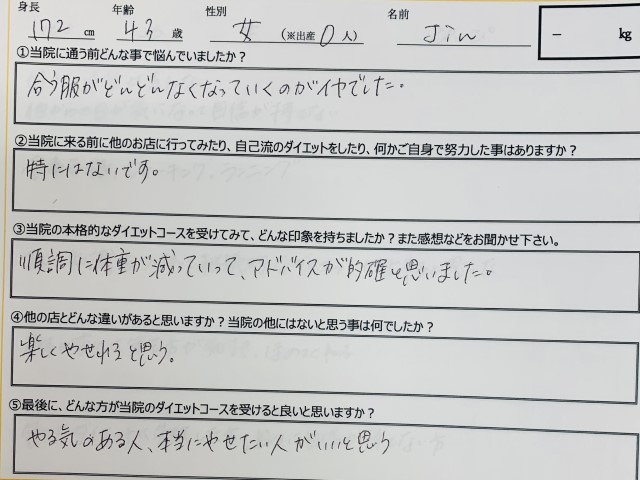 身長 172 cm 年齢 43 歳 性別 女 (※出産 0 人) 名前 Jin − kg
①当院に通う前どんな事で悩んでいましたか？
合う服がどんどんなくなっていくのがイヤでした。
②当院に来る前に他のお店に行ってみたり、自己流のダイエットをしたり、何かご自身で努力した事はありますか？
特にはないです。
③当院の本格的なダイエットコースを受けてみて、どんな印象を持ちましたか？また感想などをお聞かせ下さい。
順調に体重が減っていって、アドバイスが的確と思いました。
④他の店とどんな違いがあると思いますか？当院の他にはないと思う事は何でしたか？
楽しくやせれると思う。
⑤最後に、どんな方が当院のダイエットコースを受けると良いと思いますか？
やる気のある人、本当にやせたい人がいいと思う